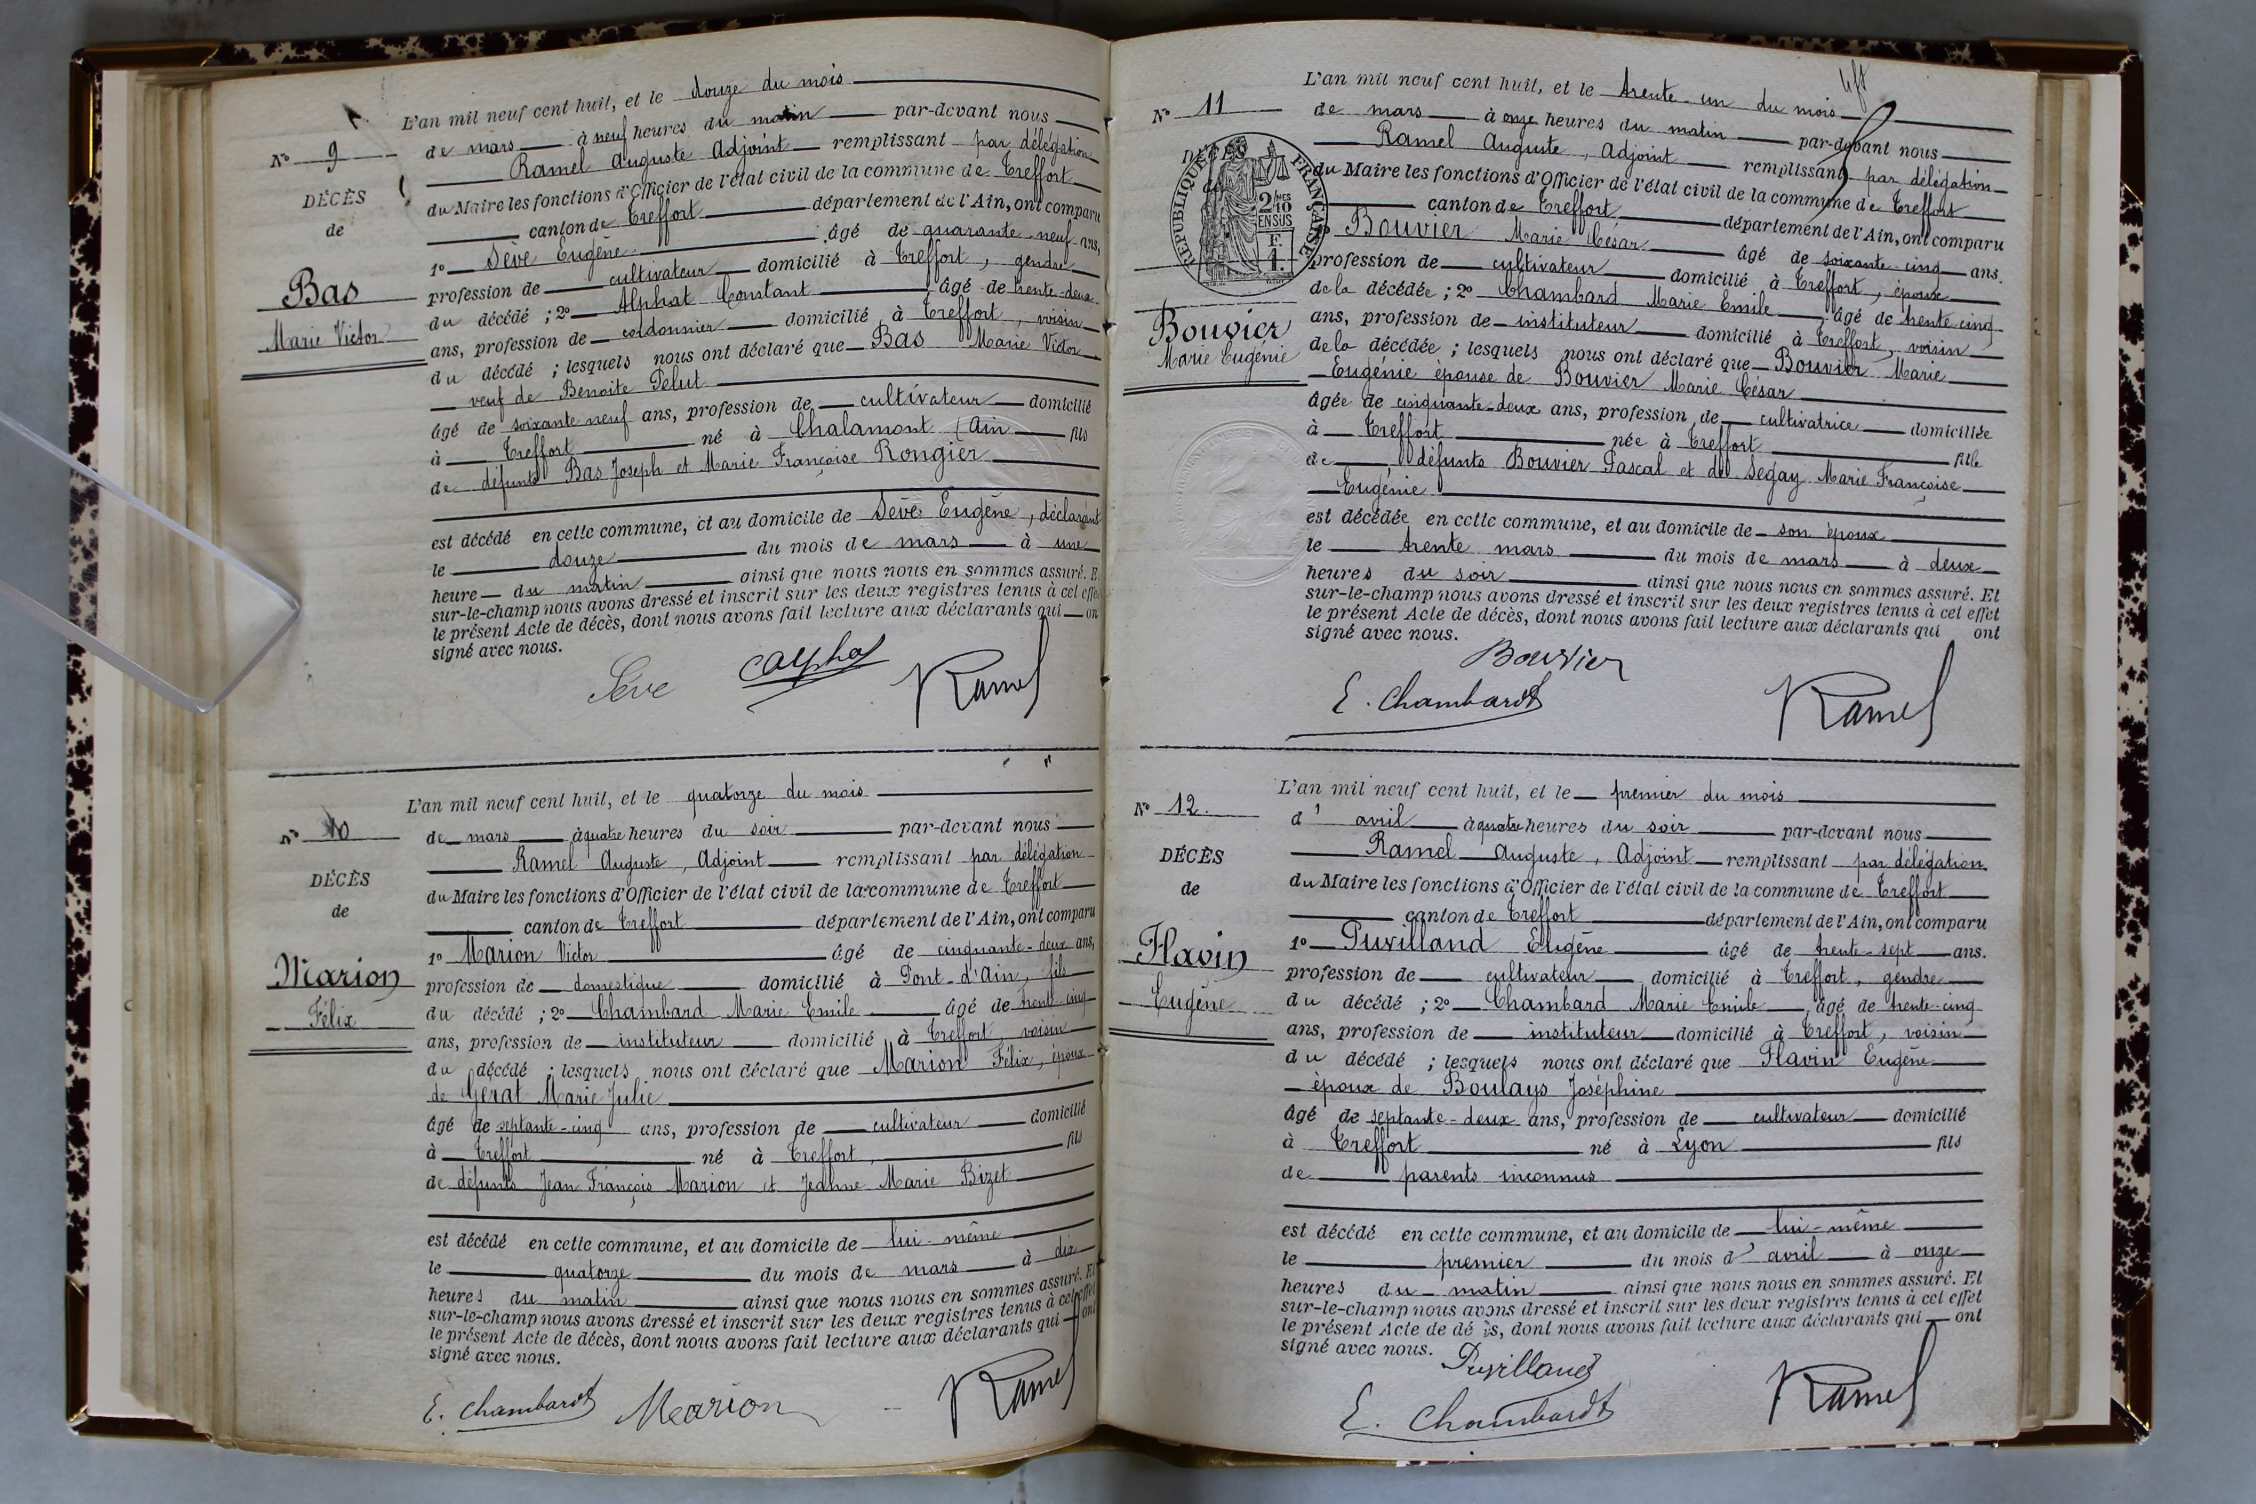 L'an mil neuf cent huit, et le douze du mois
N° 9
de mars à neuf heures du matin par-devant nous
Ramel Auguste Adjoint remplissant par délégation
DÉCÈS
du Maire les fonctions d'Officier de l'état civil de la commune de Treffort
de
canton de Treffort département de l'Ain, ont comparu
1° Sève Eugène âgé de quarante-neuf ans,
Bas
profession de cultivateur domicilié à Treffort, gendre
Marie Victor
du décédé ; 2° Alphat Constant âgé de trente-deux
ans, profession de cordonnier domicilié à Treffort, voisin
du décédé ; lesquels nous ont déclaré que Bas Marie Victor
veuf de Benoite Pelut
âgé de soixante neuf ans, profession de cultivateur domicilié
à Treffort né à Chalamont (Ain fils
de défunts Bas Joseph et Marie Françoise Rongier
est décédé en cette commune, et au domicile de Sève Eugène, déclarant
le douze du mois de mars à une
heure du matin ainsi que nous nous en sommes assuré. E
sur-le-champ nous avons dressé et inscrit sur les deux registres tenus à cet effe
le présent Acte de décès, dont nous avons fait lecture aux déclarants qui on
signé avec nous.
Sève Ramel
L'an mil neuf cent huit, et le quatorze du mois
N° 10
de mars à quatre heures du soir par-devant nous
Ramel Auguste, Adjoint remplissant par délégation
DÉCÈS
du Maire les fonctions d'Officier de l'état civil de la commune de Treffort
de
canton de Treffort département de l'Ain, ont comparu
1° Marion Victor âgé de cinquante-deux ans,
Marion
profession de domestique domicilié à Pont-d'Ain, fils
Félix
du décédé ; 2° Chambard Marie Emile âgé de trente cinq
ans, profession de instituteur domicilié à Treffort voisin
du décédé ; lesquels nous ont déclaré que Marion Félix, époux
de Gérat Marie Julie
âgé de septante-cinq ans, profession de cultivateur domicilié
à Treffort né à Treffort, fils
de défunts Jean François Marion et Jeanne Marie Bizet
est décédé en cette commune, et au domicile de lui-même
le quatorze du mois de mars à dix
heures du matin ainsi que nous nous en sommes assuré. Et
sur-le-champ nous avons dressé et inscrit sur les deux registres tenus à cet effet
le présent Acte de décès, dont nous avons fait lecture aux déclarants qui ont
signé avec nous.
E. Chambardt Marion Ramel
L'an mil neuf cent huit, et le trente-un du mois
N° 11
de mars à onze heures du matin par-devant nous
Ramel Auguste, Adjoint remplissant par délégation
RÉPUBLIQUE FRANÇAISE
2/10 EN SUS
F. 1.
du Maire les fonctions d'Officier de l'état civil de la commune de Treffort
canton de Treffort département de l'Ain, ont comparu
1° Bouvier Marie César âgé de soixante-cinq ans.
profession de cultivateur domicilié à Treffort, époux
de la décédée ; 2° Chambard Marie Emile, âgé de trente cinq
Bouvier
ans, profession de instituteur domicilié à Treffort, voisin
Marie Eugénie
de la décédée ; lesquels nous ont déclaré que Bouvier Marie
Eugénie épouse de Bouvier Marie César
âgée de cinquante-deux ans, profession de cultivatrice domiciliée
à Treffort née à Treffort fille
de défunts Bouvier Pascal et de Segay Marie Françoise
Eugénie
est décédée en cette commune, et au domicile de son époux
le trente mars du mois de mars à deux
heures du soir ainsi que nous nous en sommes assuré. Et
sur-le-champ nous avons dressé et inscrit sur les deux registres tenus à cet effet
le présent Acte de décès, dont nous avons fait lecture aux déclarants qui ont
signé avec nous.
Bouvier
E. Chambardt Ramel
L'an mil neuf cent huit, et le premier du mois
N° 12.
d'avril à quatre heures du soir par-devant nous
Ramel Auguste, Adjoint remplissant par délégation
DÉCÈS
du Maire les fonctions d'Officier de l'état civil de la commune de Treffort
de
canton de Treffort département de l'Ain, ont comparu
1° Puvilland Eugène âgé de trente-sept ans.
Flavin
profession de cultivateur domicilié à Treffort, gendre
Eugène
du décédé ; 2° Chambard Marie Emile, âgé de trente-cinq
ans, profession de instituteur domicilié à Treffort, voisin
du décédé ; lesquels nous ont déclaré que Flavin Eugène
époux de Boulays Joséphine
âgé de septante-deux ans, profession de cultivateur domicilié
à Treffort né à Lyon fils
de parents inconnus
est décédé en cette commune, et au domicile de lui-même
le premier du mois d'avril à onze
heures du matin ainsi que nous nous en sommes assuré. Et
sur-le-champ nous avons dressé et inscrit sur les deux registres tenus à cet effet
le présent Acte de dé ès, dont nous avons fait lecture aux déclarants qui ont
signé avec nous.
Puvilland
E. Chambardt Ramel